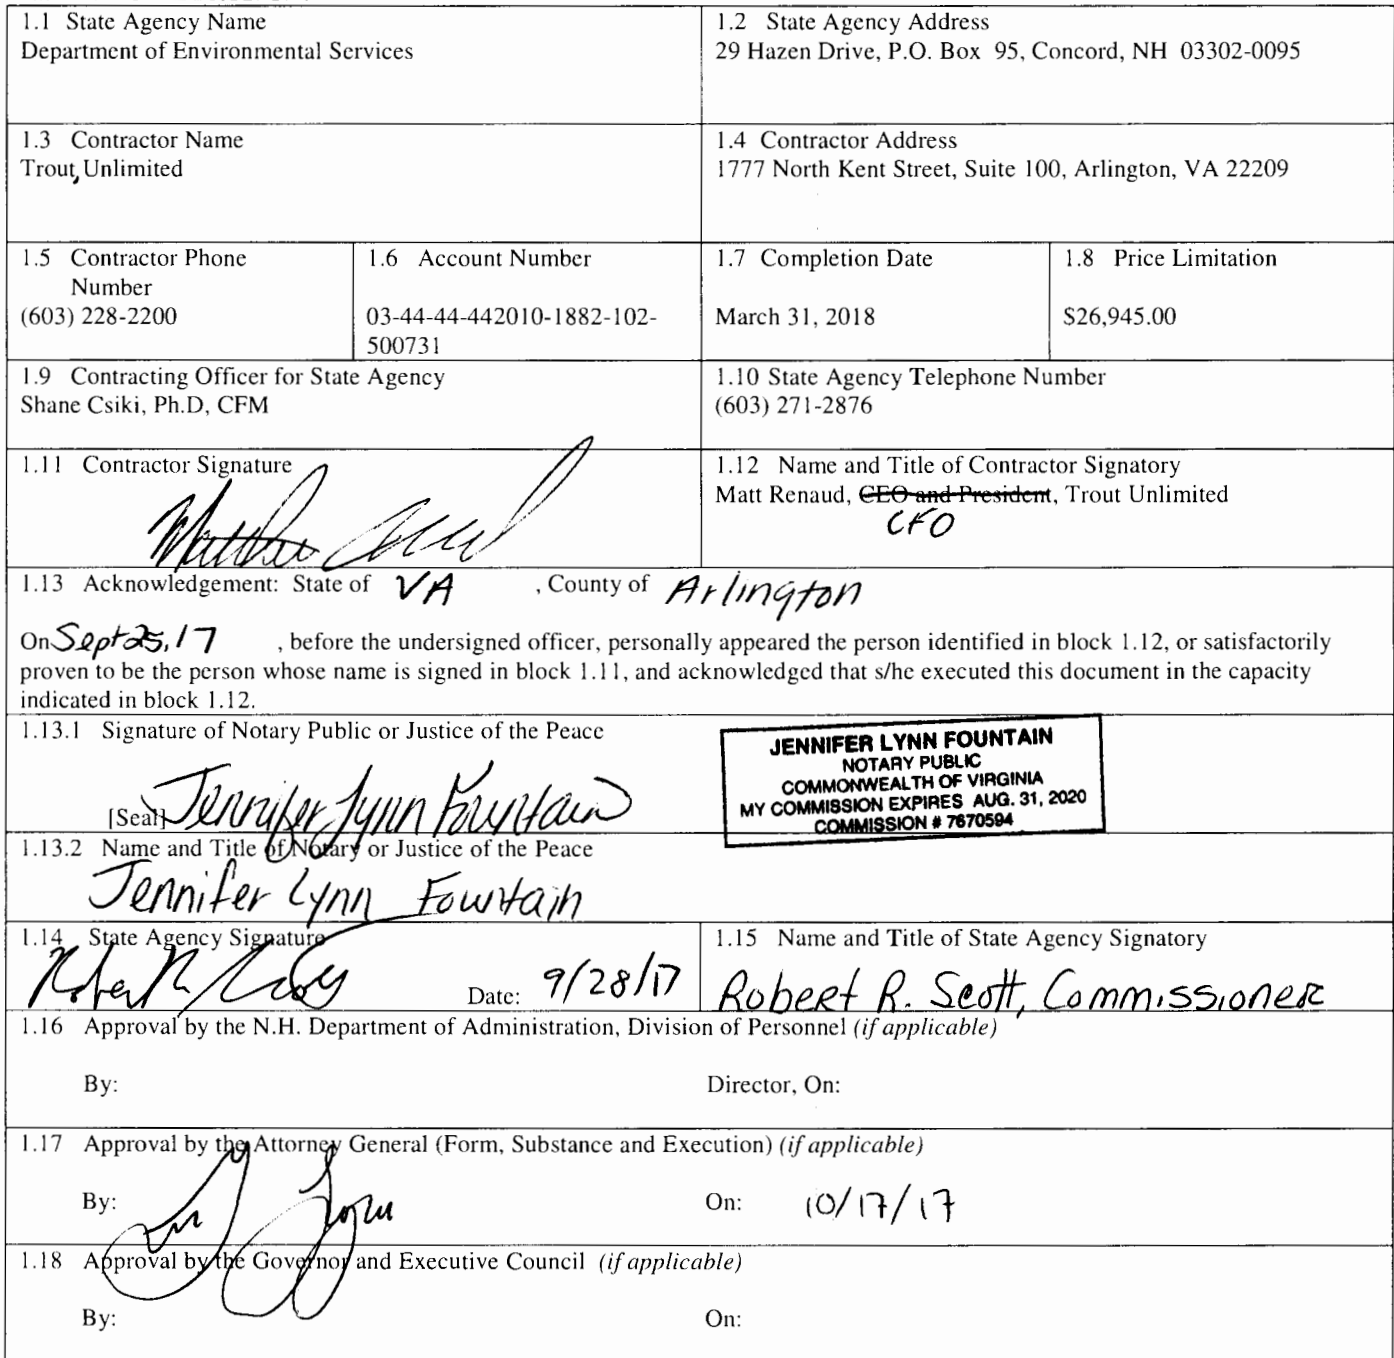 1.1 State Agency Name
Department of Environmental Services
1.2 State Agency Address
29 Hazen Drive, P.O. Box 95, Concord, NH 03302-0095
1.3 Contractor Name
Trout, Unlimited
1.4 Contractor Address
1777 North Kent Street, Suite 100, Arlington, VA 22209
1.5 Contractor Phone
Number
(603) 228-2200
1.6 Account Number
03-44-44-442010-1882-102-
500731
1.7 Completion Date
March 31, 2018
1.8 Price Limitation
$26,945.00
1.9 Contracting Officer for State Agency
Shane Csiki, Ph.D, CFM
1.10 State Agency Telephone Number
(603) 271-2876
1.11 Contractor Signature
1.12 Name and Title of Contractor Signatory
Matt Renaud, CEO and President, Trout Unlimited
CFO
1.13 Acknowledgement: State of VA , County of Arlington
On Sept 25, 17 , before the undersigned officer, personally appeared the person identified in block 1.12, or satisfactorily
proven to be the person whose name is signed in block 1.11, and acknowledged that s/he executed this document in the capacity
indicated in block 1.12.
1.13.1 Signature of Notary Public or Justice of the Peace
[Seal] Jennifer Lynn Fountain
JENNIFER LYNN FOUNTAIN
NOTARY PUBLIC
COMMONWEALTH OF VIRGINIA
MY COMMISSION EXPIRES AUG. 31, 2020
COMMISSION # 7670594
1.13.2 Name and Title of Notary or Justice of the Peace
Jennifer Lynn Fountain
1.14 State Agency Signature
Date: 9/28/17
1.15 Name and Title of State Agency Signatory
Robert R. Scott, Commissioner
1.16 Approval by the N.H. Department of Administration, Division of Personnel (if applicable)
By:
Director, On:
1.17 Approval by the Attorney General (Form, Substance and Execution) (if applicable)
By:
On: 10/17/17
1.18 Approval by the Governor and Executive Council (if applicable)
By:
On: